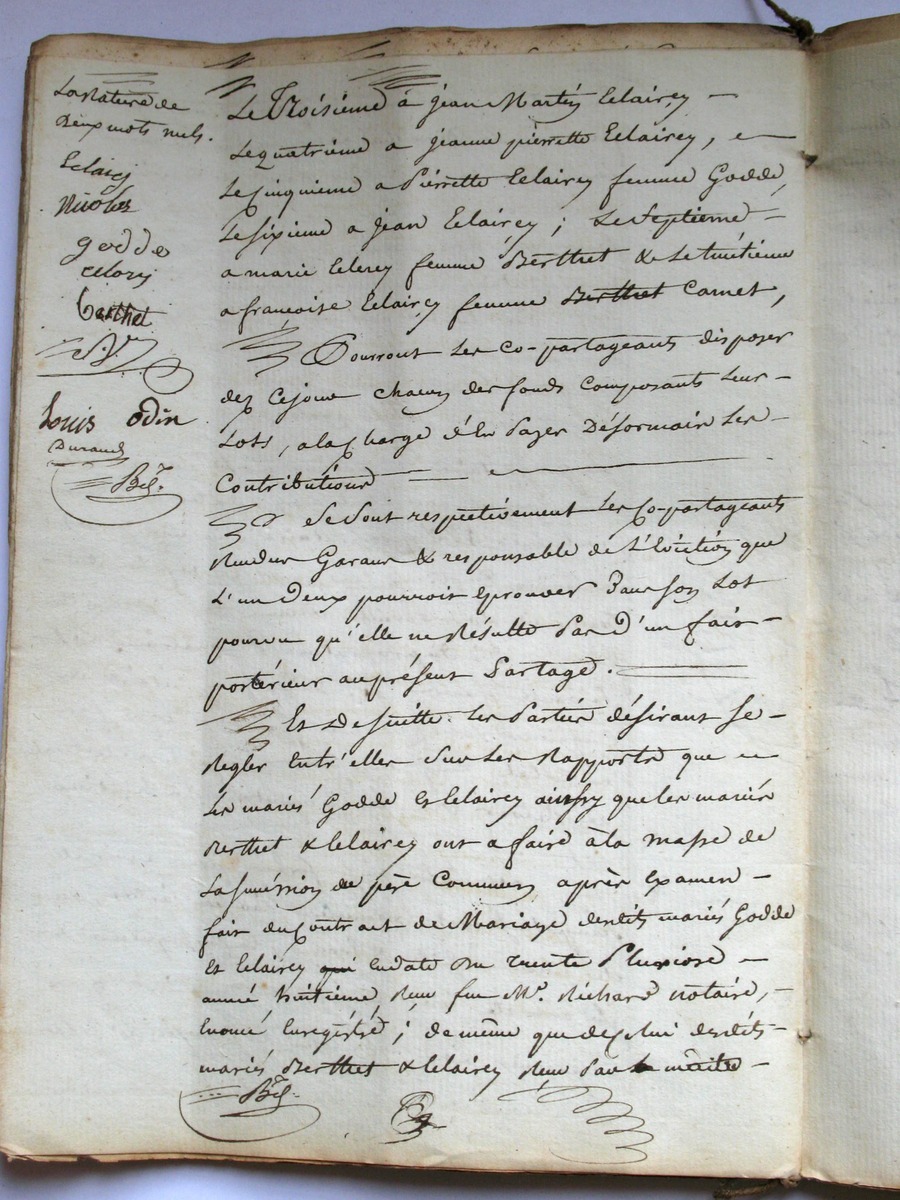 La Rature de
Deux mots nuls.
Eclairej
Nicolas
godde
Berthet
Louis Odin
Durand
Le Troisième à jean Martin Eclairey
Le quatrième a jeanne pierrette Eclairey, e
Le Cinquieme a Pierrette Eclairey femme Godde
Le sixieme a jean Eclairey ; Le Septieme
a marie femme Berthet & Le
a francoise Eclairey femme Berthet Carnet,
Pourront Les Co-partageants disposer
dez Cejour chacun des fonds Composants Leur
Lots, ala Charge d'En Payer Désormais Les
Contributions
Se Sont respectivement Les Co-partageants
Rendus Garans & responsable de L'Eviction que
L'un Deux pourroit Eprouver Dans son Lot
pourvu qu'elle ne Résulte Pas D'un fait
postérieur au présent Partage.
Et De Suitte Les Parties désirant se
Regler Entr'elles Sur Les Rapports que
Les mariés Godde et Eclairey ainssy que les mariés
Berthet & Eclairey ont a faire à la masse de
La succession du père Commun après Examen
fait du Contract de Mariage desdits mariés Godde
Et Eclairey qui Endate Du trente Pluviose
année huitieme, Reçu feu Me. Richard notaire,
Enoncé Enregistré ; de même que de Celui desdits
mariés Berthet & Eclairey Reçu Par